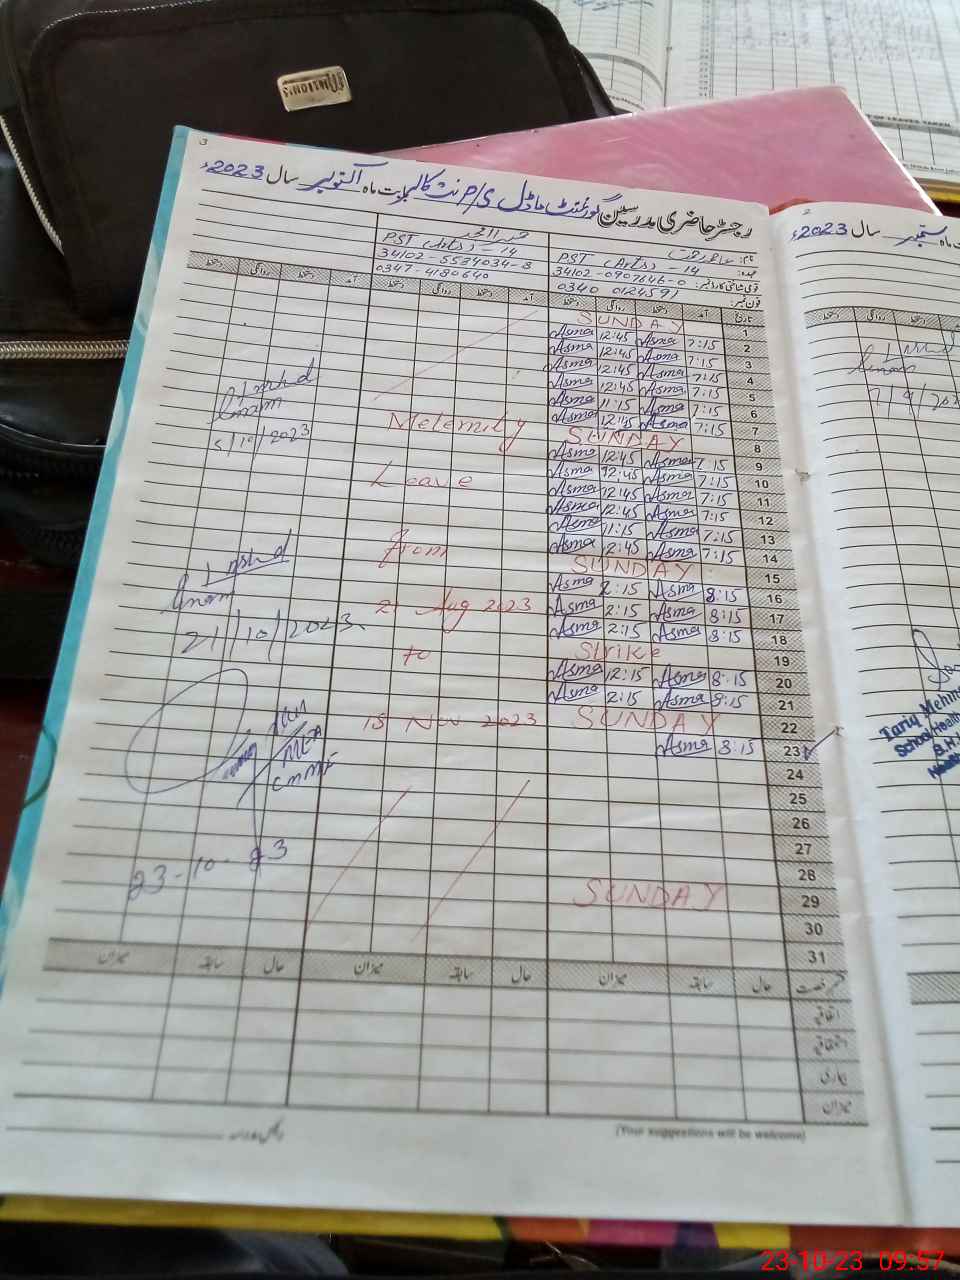 3
رجسٹر حاضری مدرسین گورنمنٹ ماڈل بابت ماہ اکتوبر سال 2023ء
نام:
عہدہ: PST (Arts) - 14
PST (Arts) - 14
قومی شناختی کارڈ نمبر: 34102-0907646-0
34102-5534034-8
فون نمبر: 0340 0124591
0347-4180640
تاریخ آمد دستخط روانگی دستخط آمد دستخط روانگی دستخط آمد دستخط روانگی دستخط
1 SUNDAY
2 7:15 Asma 12:45 Asma
3 7:15 Asma 12:45 Asma
4 7:15 Asma 12:45 Asma
5 7:15 Asma 12:45 Asma
6 7:15 Asma 11:15 Asma
7 7:15 Asma 12:45 Asma
8 SUNDAY
9 7:15 Asma 12:45 Asma
10 7:15 Asma 12:45 Asma
11 7:15 Asma 12:45 Asma
12 7:15 Asma 12:45 Asma
13 7:15 Asma 11:15 Asma
14 7:15 Asma 12:45 Asma
15 SUNDAY
16 8:15 Asma 2:15 Asma
17 8:15 Asma 2:15 Asma
18 8:15 Asma 2:15 Asma
19 Strike
20 8:15 Asma 12:15 Asma
21 8:15 Asma 2:15 Asma
22 SUNDAY
23 8:15 Asma
24
25
26
27
28
29 SUNDAY
30
31
Meternity
Leave
From
21 Aug 2023
to
15 Nov 2023
5/10/2023
21/10/2023
MEA
23-10-23
حال سابقہ میزان حال سابقہ میزان حال سابقہ میزان
اتفاقیہ
استحقاقیہ
بیماری
میزان
(Your suggestions will be welcome)
2
ستمبر سال 2023ء
Tariq Mehm
School Health
B.H.
Health
OF LEAVES TAKEN
23-10-23 09:57